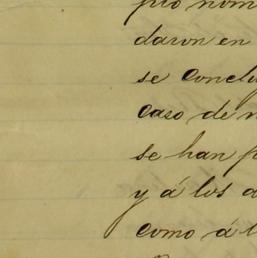 pro nom
daron en
se conclu
caso de
se han p
y á los a
como á l